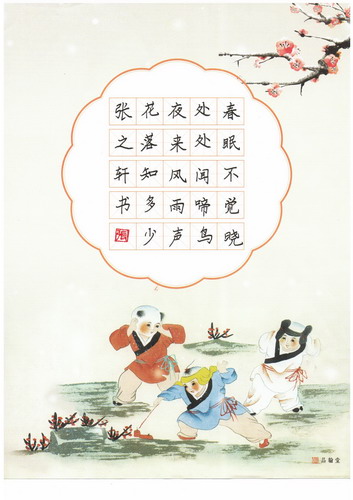 春眠不觉晓
处处闻啼鸟
夜来风雨声
花落知多少
张之轩书
品翰堂